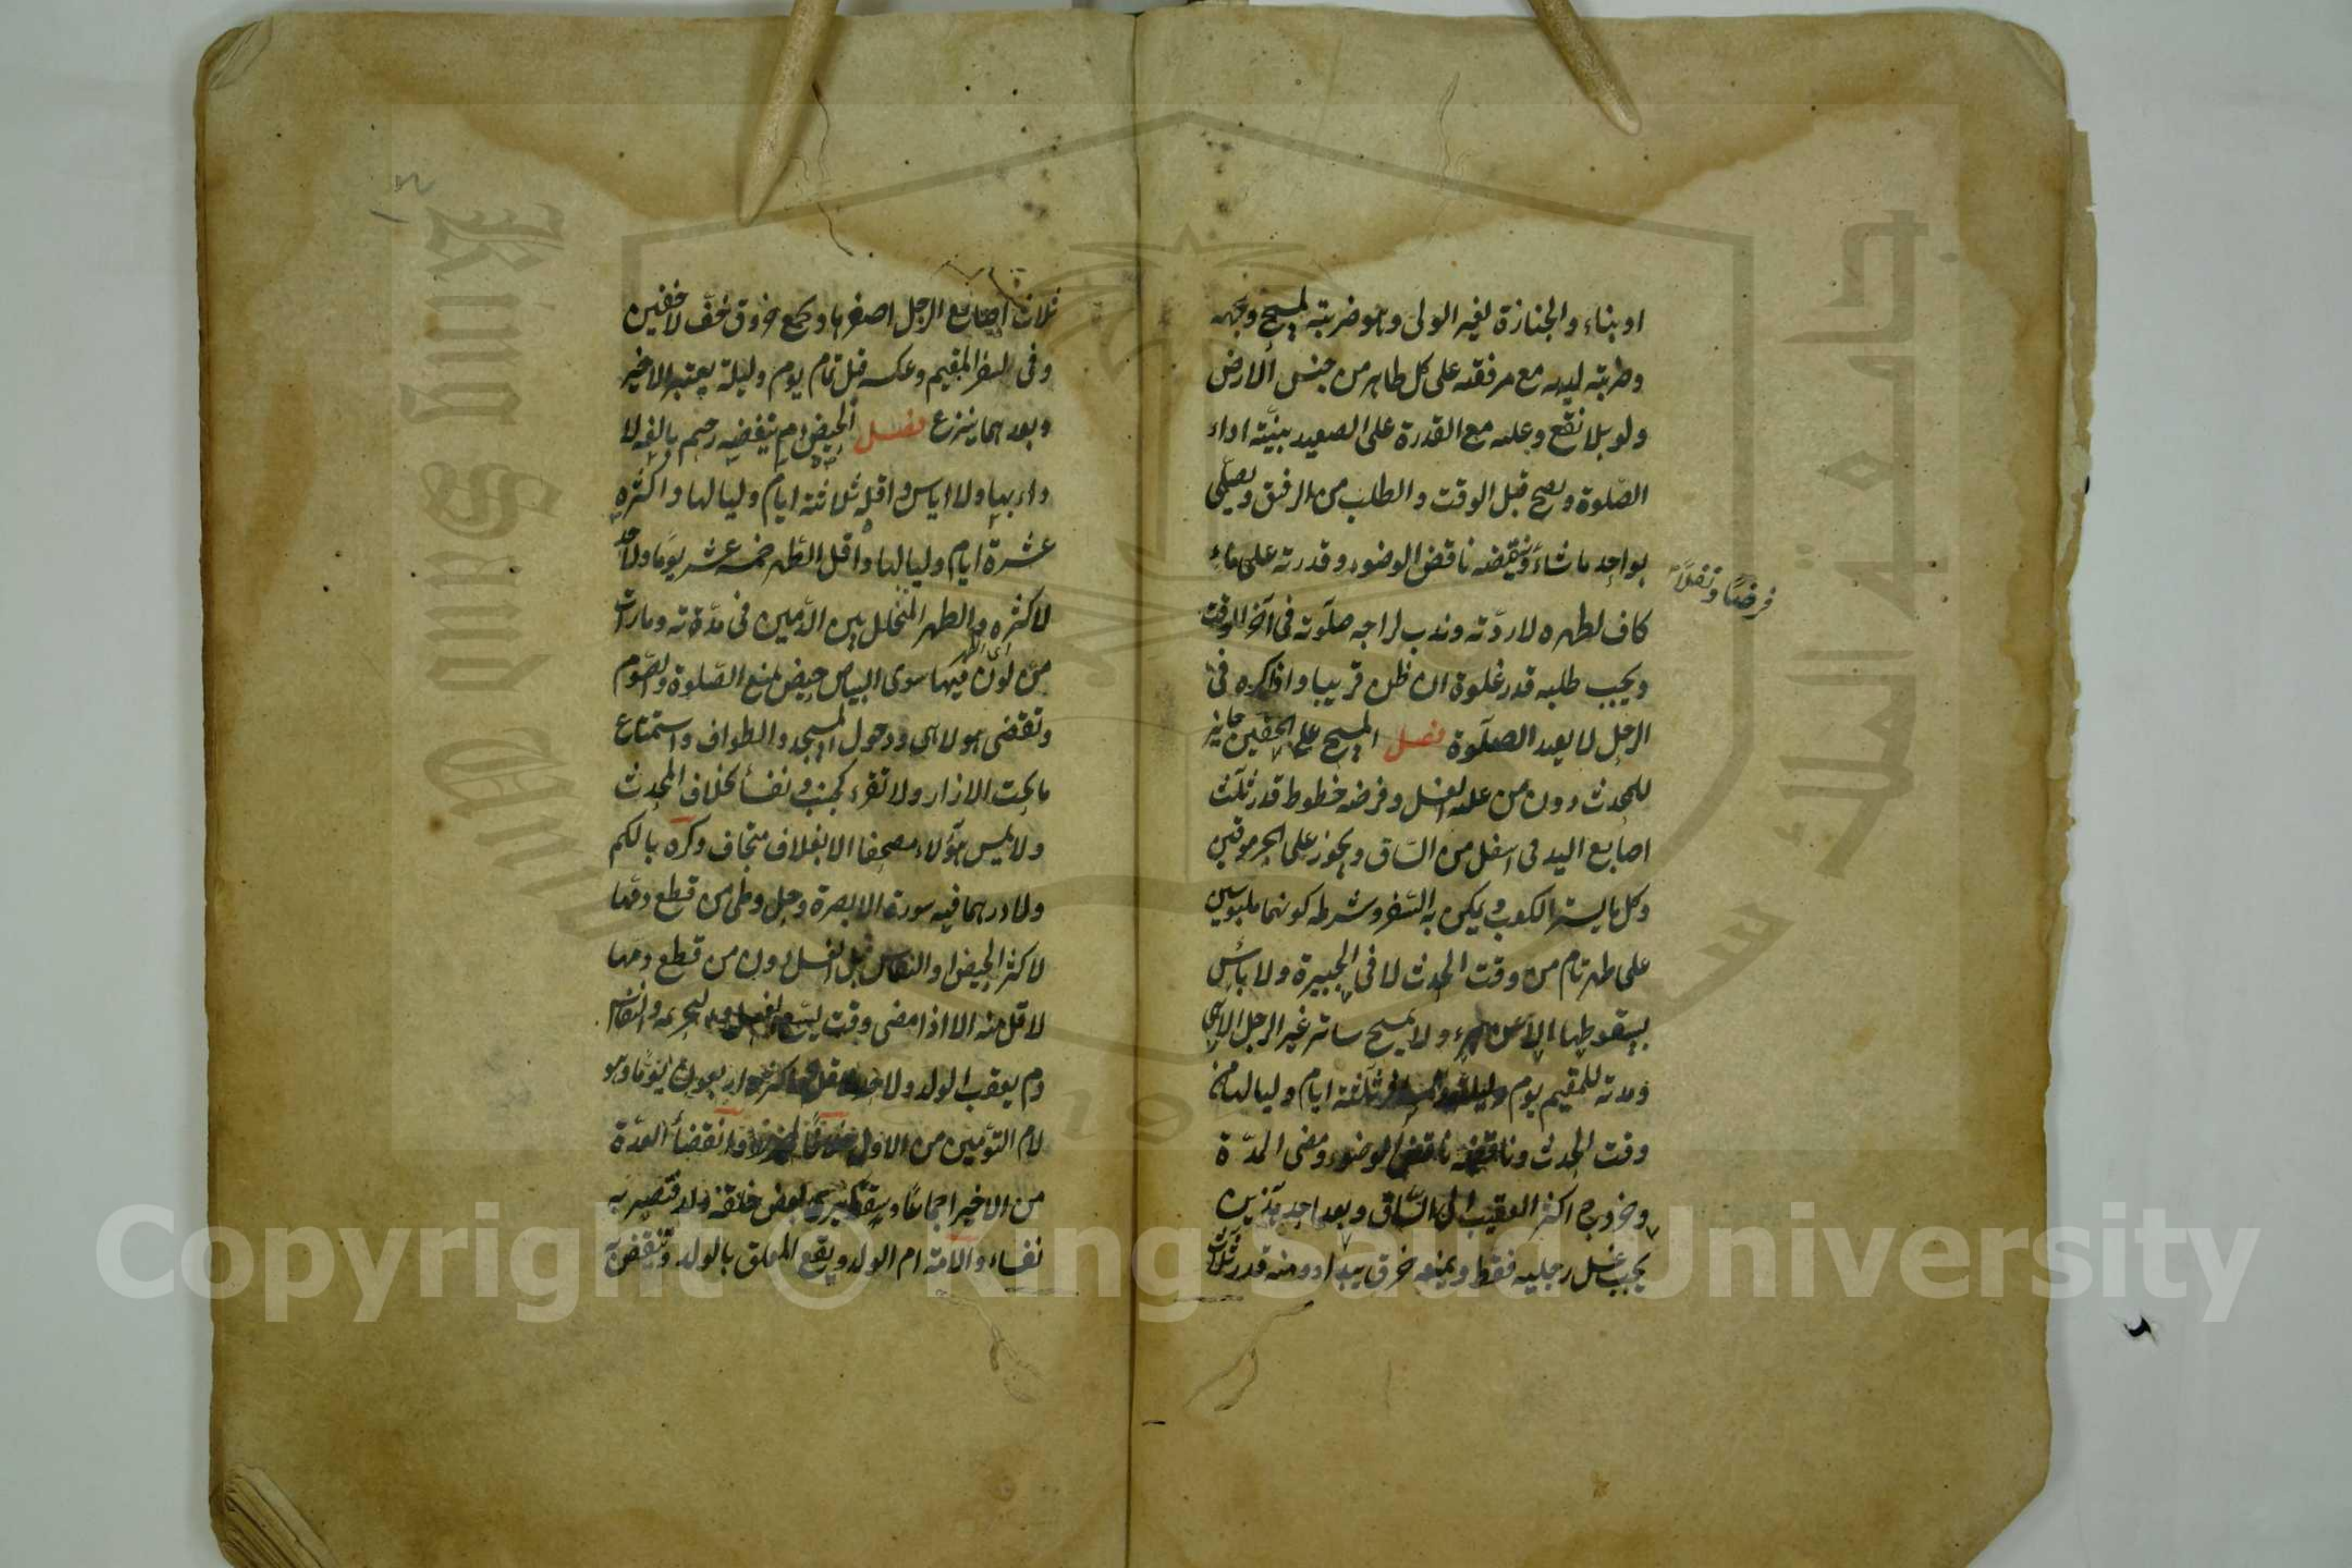 او بناء والجنازة لغير الولى وهو ضربته لمسح وجهه
وضربته ليديه مع مرفقيه على كل طاهر من جنس الارض
ولو بلا نقع وعليه مع القدرة على الصعيد بنيّة اداء
الصّلوة ويصح قبل الوقت والطلب من الرفيق ويصلّى
بواحد ما شاء وينقضه ناقض الوضوء وقدرته على ماء
فرضًا ونفلًا
كاف لطهره لا ردّته وندب لراجيه صلوته فى آخر الوقت
ويجب طلبه قدر غلوة ان ظن قريبا واذا ذكره فى
الرحل لا يعيد الصلوة فصل المسح على الخفين جائز
للمحدث دون من عليه الغسل وفرضه خطوط قدر ثلث
اصابع اليد فى اسفل من السّاق ويجوز على الجرموقين
وكل ما يستر الكعب ويمكن به السّفر وشرطه كونهما ملبوسين
على طهر تام من وقت الحدث لا فى الجبيرة ولا بأس
بسقوطها الا عن برء ولا يمسح ساتر غير الرجل الا هى
ومدته للمقيم يوم وليلة وللمسافر ثلثة ايام ولياليها من
وقت الحدث وناقضه ناقض الوضوء ومضى المدّة
وخروج اكثر العقب الى السّاق وبعد احد هذين
يجب غسل رجليه فقط ويمنعه خرق يبدو منه قدر ثلاث
ثلاث اصابع الرجل اصغرها ويجمع خروق خفّ لا خفين
وفى سفر المقيم وعكسه قبل تمام يوم وليلة يعتبر الاخير
وبعدهما ينزع فصل الحيض دم ينفضه رحم بالغة لا
داء بها ولا اياس واقله ثلاثة ايام ولياليها واكثره
عشرة ايام ولياليها واقل الطّهر خمسة عشر يومًا ولا حد
لاكثره والطهر المتخلل بين الدّمين فى مدّته وما رأت
من لون فيها سوى البياض حيض يمنع الصّلوة والصّوم
وتقضى هو لا هى ودخول المسجد والطواف واستمتاع
ما تحت الازار ولا تقرء كجنب ونفساء بخلاف المحدث
ولا يمس هؤلاء مصحفا الا بغلاف متجاف وكره بالكم
ولا درهما فيه سورة الا بصرة وحل وطى من قطع دمها
لاكثر الحيض او النفاس قبل الغسل دون من قطع دمها
لاقل منه الا اذا مضى وقت يسع الغسل والتحريمه والنفاس
دم يعقب الولد ولا حد لاقله واكثره اربعون يومًا وهو
لام التوأمين من الاول وانقضاء العدّة
من الاخير اجماعًا وسقط يرى بعض خلقه ولد فتصير به
نفساء والامة ام الولد ويقع المعلق بالولد وتنقضى به